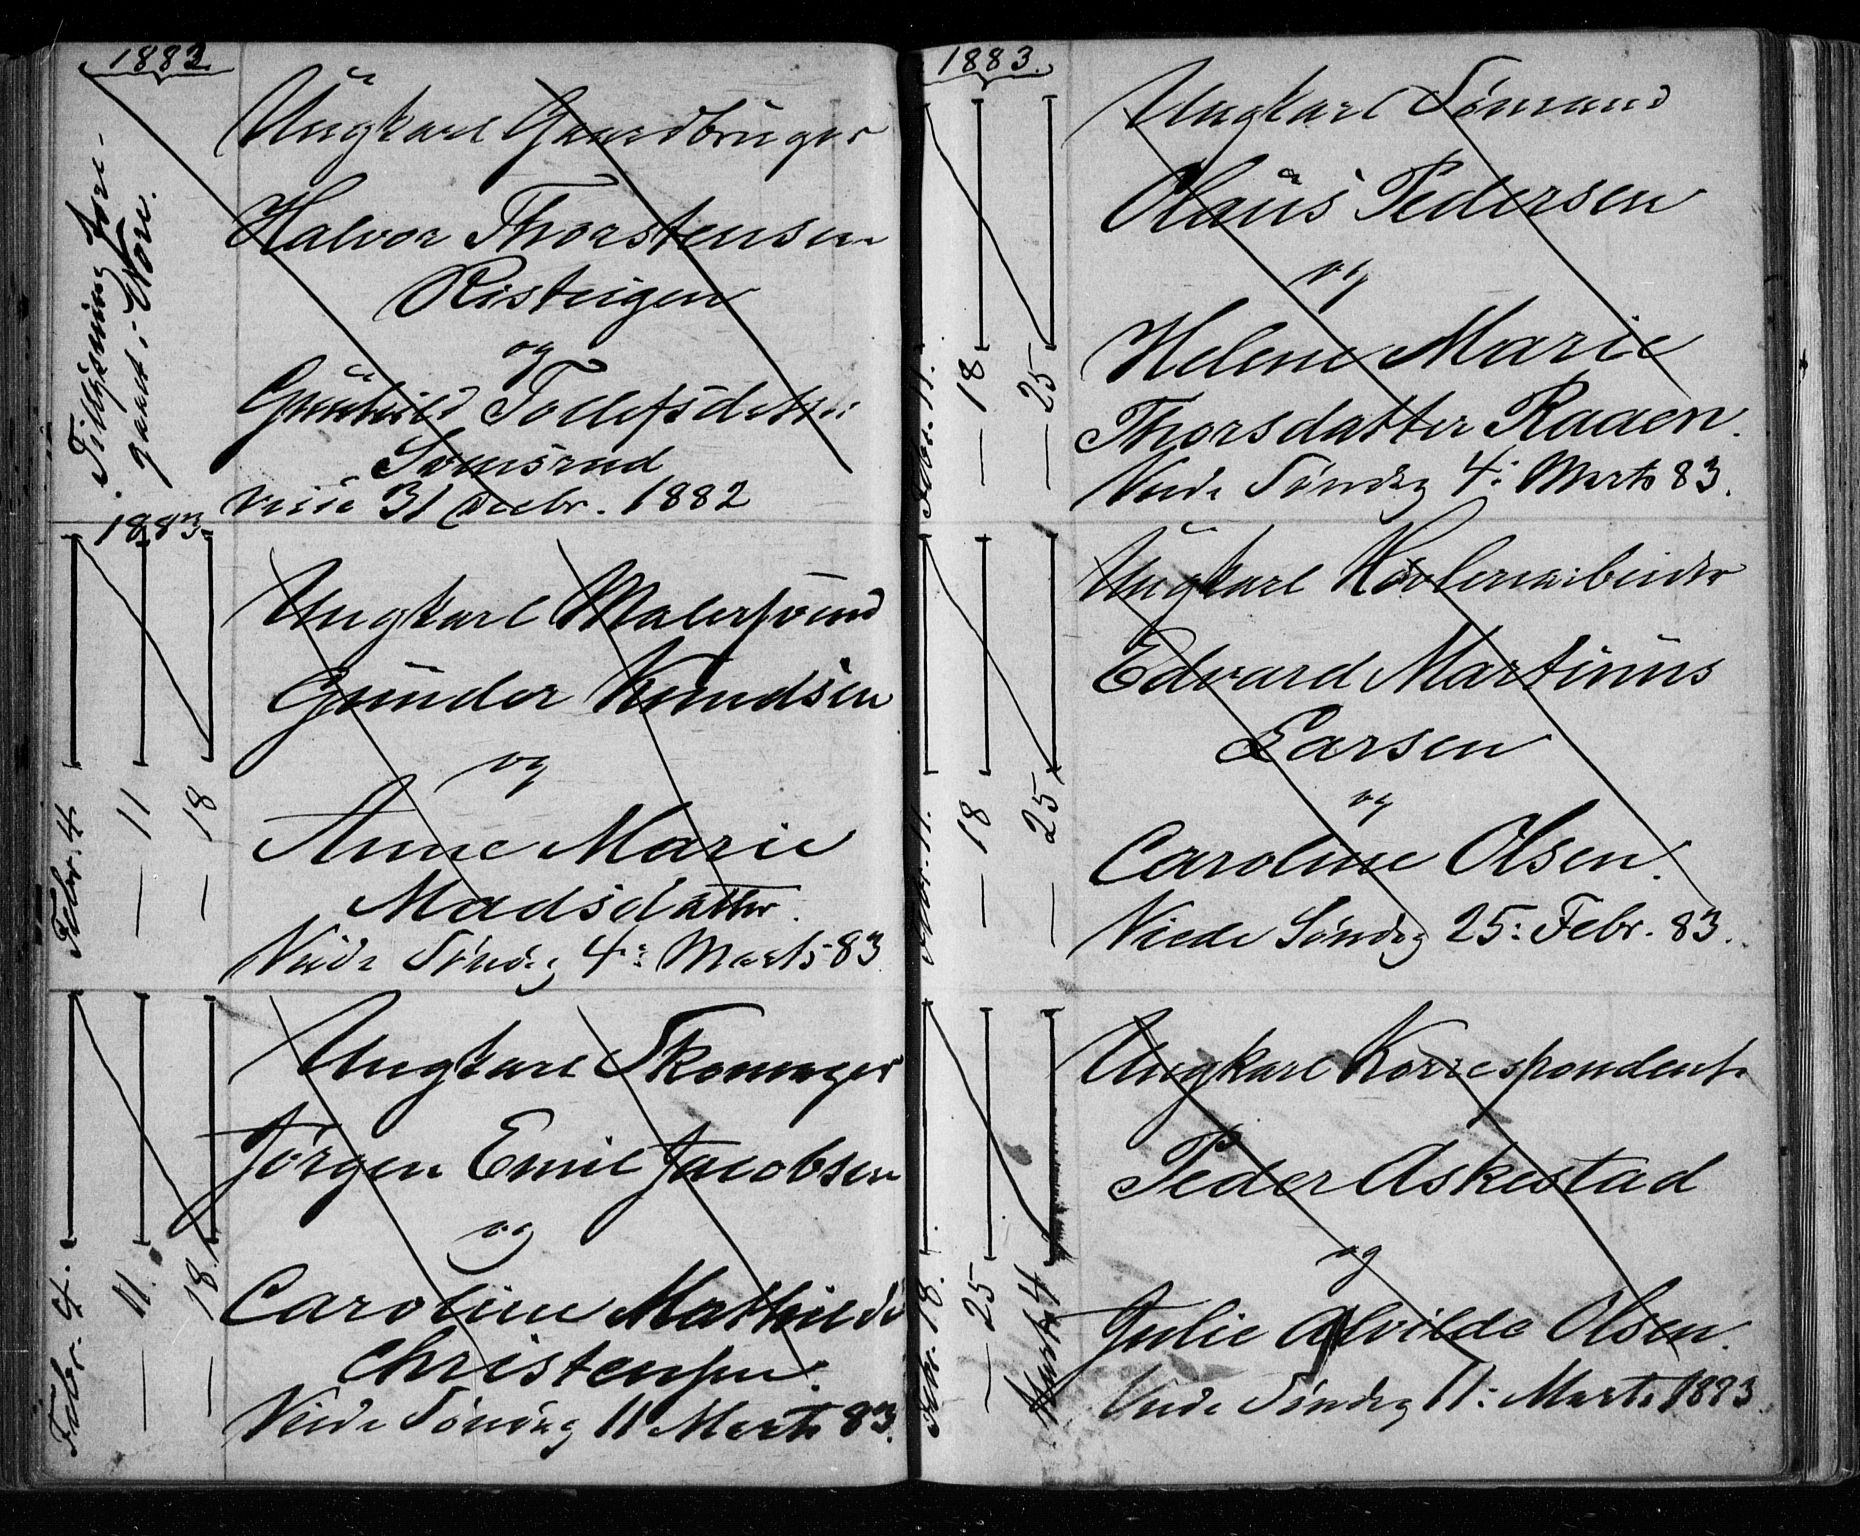 1883.
Tillysning fore-
gaaet i Nore.
Ungkarl Gaardbruger
Halvor Thorstensen
Risteigen
og
Gunhild Tollefsdatter
viede 31 Decbr. 1882
1883.
Febr. 4
— 11
— 18
Ungkarl Malersvend
Gunder Knudsen
og
Anne Marie
Madsdatter.
Viede Søndag 4: Marts 83
Febr. 4.
— 11.
— 18.
Ungkarl Skomager
Jørgen Emil Jacobsen
og
Caroline Mathilde
Christensen.
Viede Søndag 11 Marts 83.
1883.
Febr. 11.
— 18
— 25
Ungkarl Sømand
Olaus Pedersen
og
Helene Marie
Thorsdatter Raaen.
Viede Søndag 4: Marts 83.
Febr. 11.
— 18
— 25
Ungkarl Høvleriarbeider
Edvard Martinus
Larsen
og
Caroline Olsen.
Viede Søndag 25: Febr. 83.
Febr. 18.
— 25
Marts 4
Ungkarl Korrespondent
Peder Askestad
og
Julie Alvilde Olsen.
Viede Søndag 11: Marts 1883.